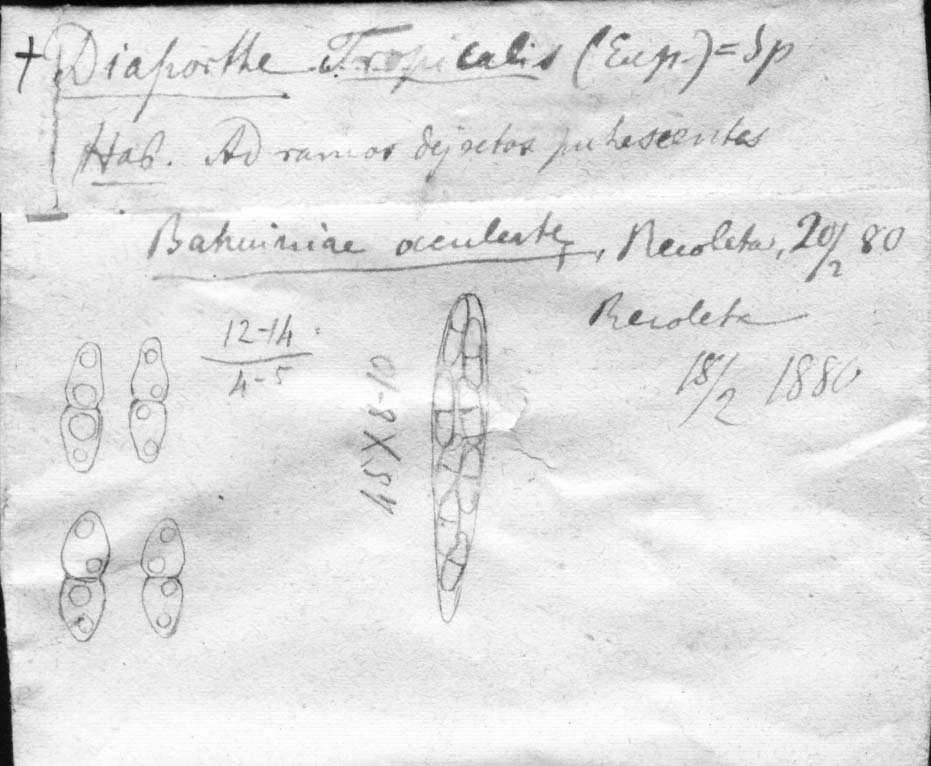 + Diaporthe Tropicalis (Eup.) = Sp
Hab. Ad ramos dejectos putrescentes
Bahuiniae aculeatae, Recoleta, 20/2 80
Recoleta
18/2 1880
12-14
4-5
45 X 8-10